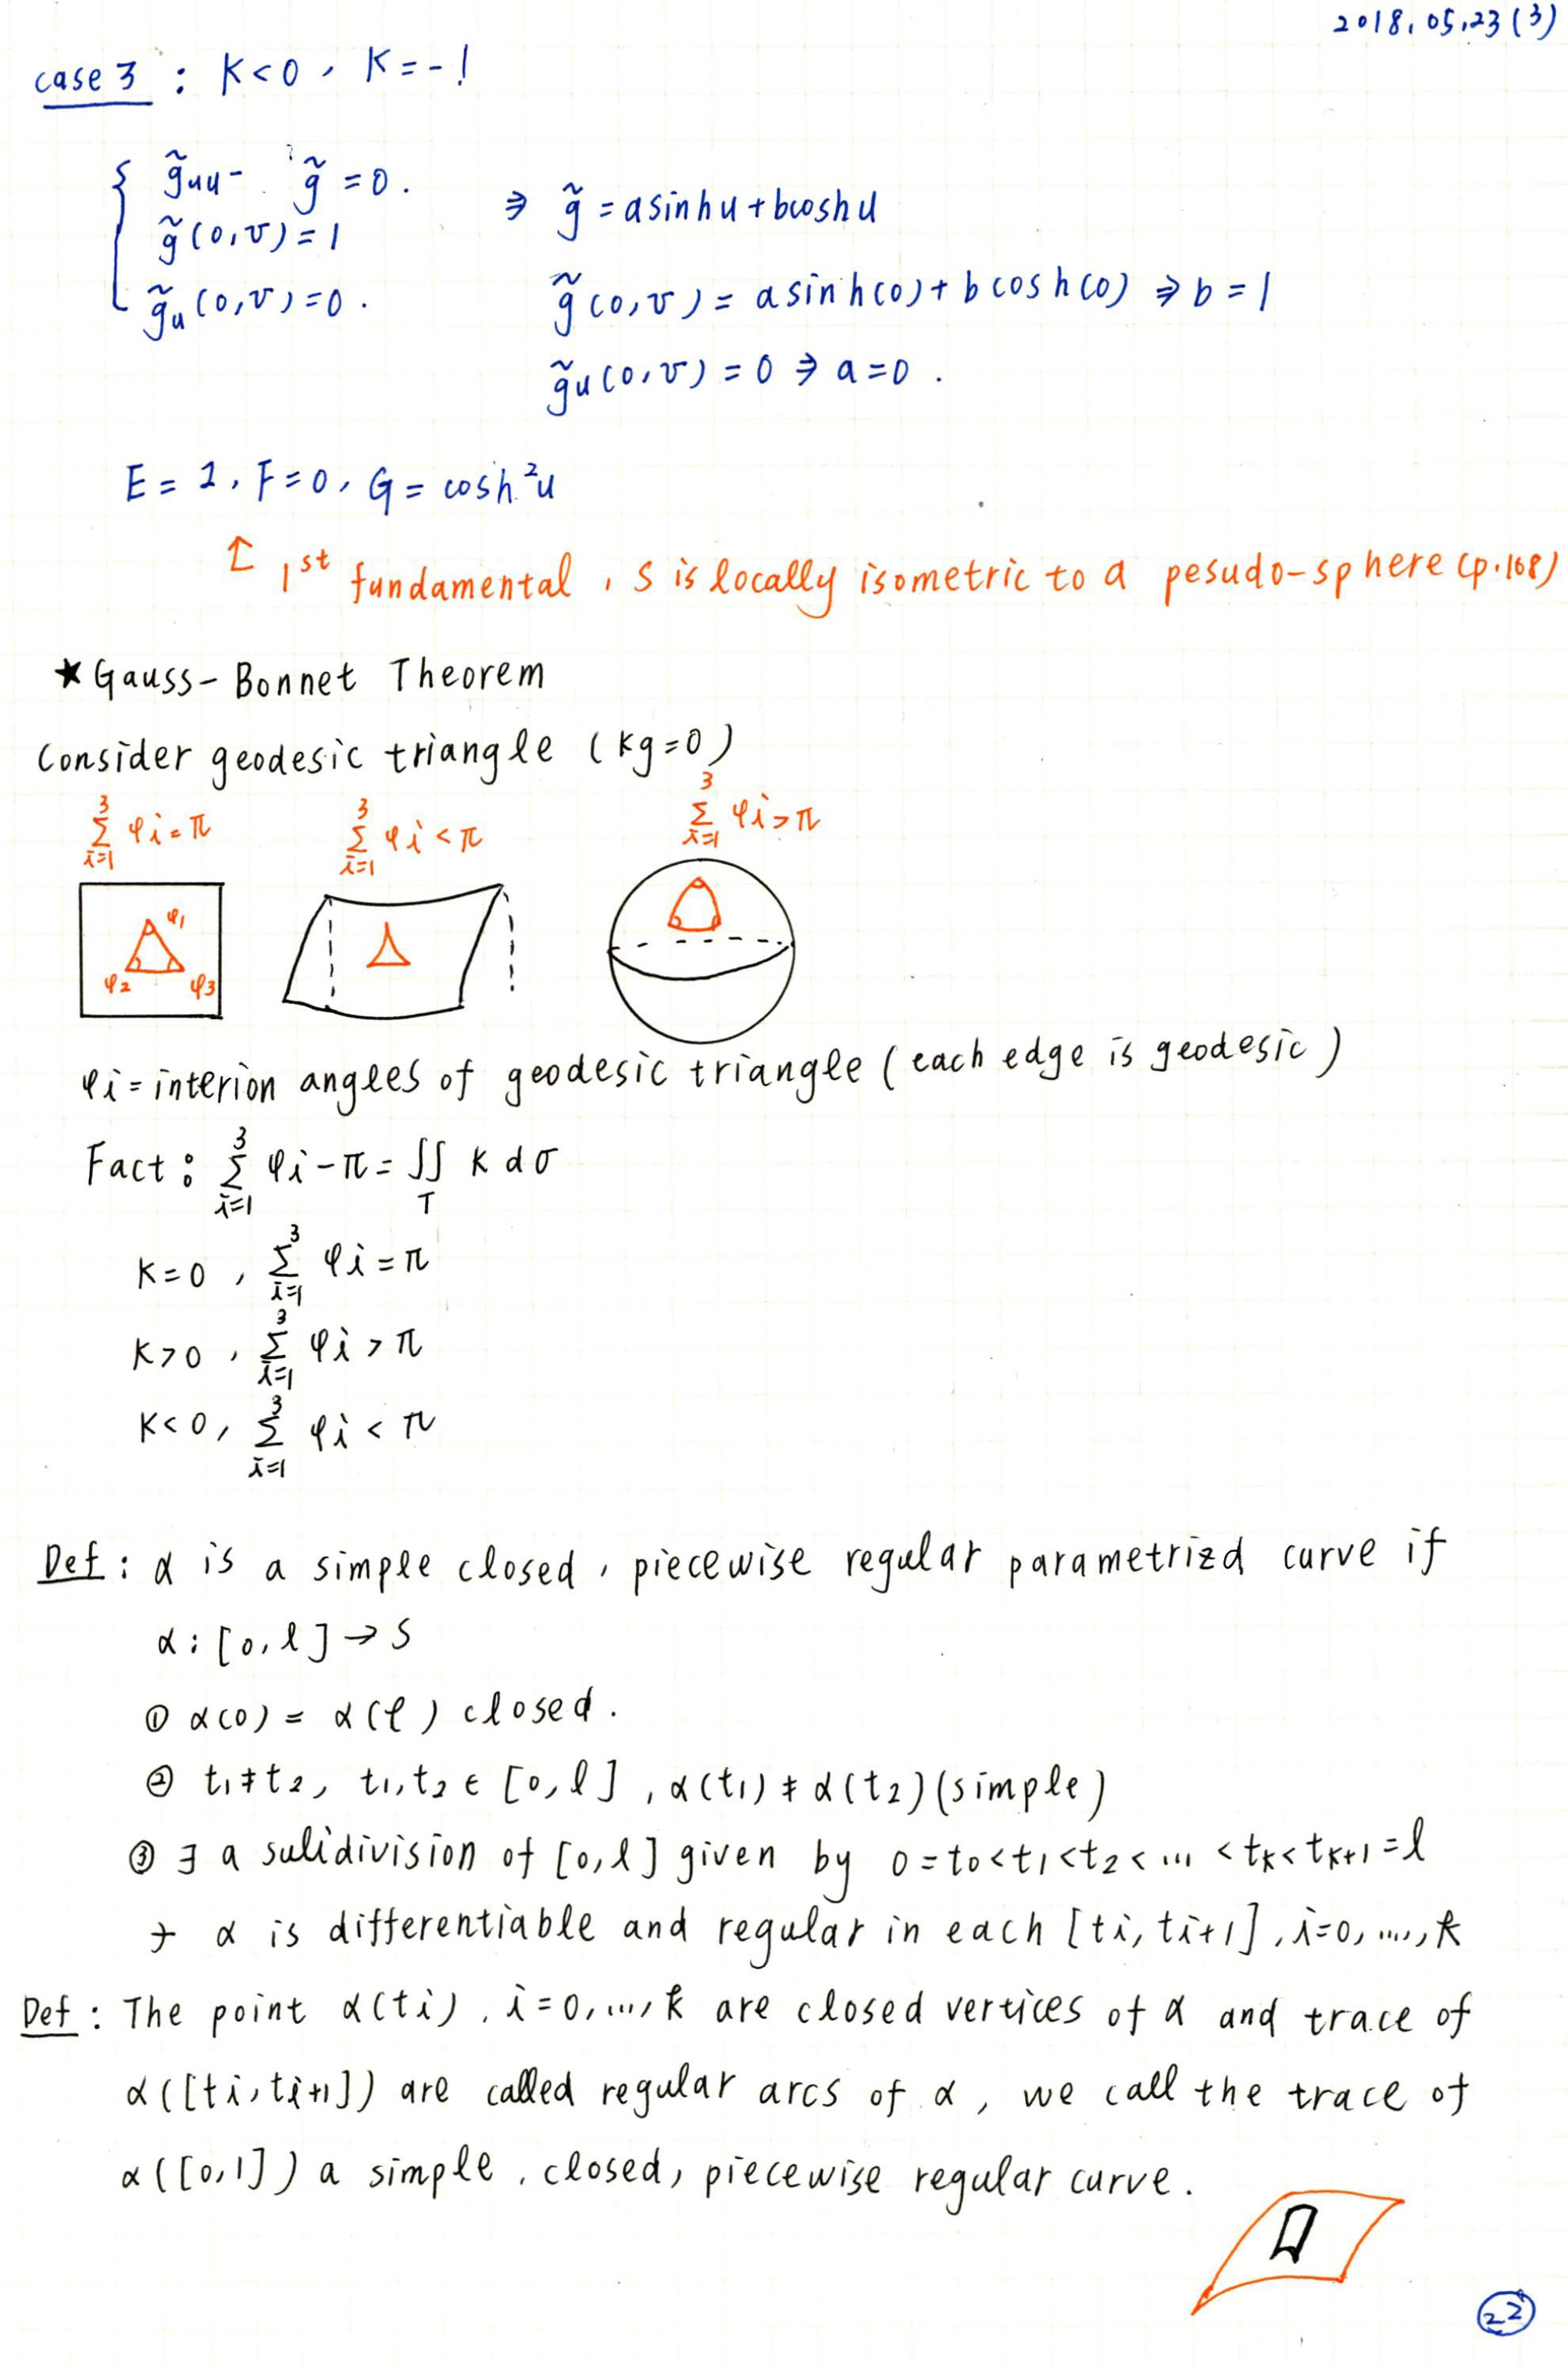 2018.05.23(3)
case 3 : K<0, K=-1
g̃uu- g̃ =0.
g̃(0,v)=1
g̃u(0,v)=0.
⇒ g̃ = asinhu+bcoshu
g̃(0,v) = asinh(0)+bcosh(0) ⇒ b=1
g̃u(0,v)=0 ⇒ a=0.
E=1, F=0, G=cosh²u
↑ 1st fundamental, S is locally isometric to a pesudo-sphere (p.168)
★Gauss-Bonnet Theorem
Consider geodesic triangle (kg=0)
∑_{i=1}^{3} φi=π ∑_{i=1}^{3} φi<π ∑_{i=1}^{3} φi>π
φ1
φ2 φ3
φi=interion angles of geodesic triangle (each edge is geodesic)
Fact: ∑_{i=1}^{3} φi-π=∬_T K dσ
K=0, ∑_{i=1}^{3} φi=π
K>0, ∑_{i=1}^{3} φi>π
K<0, ∑_{i=1}^{3} φi<π
Def: α is a simple closed, piecewise regular parametrizd curve if
α:[0,l]→S
① α(0)=α(l) closed.
② t1≠t2, t1,t2∈[0,l], α(t1)≠α(t2)(simple)
③ ∃ a sulidivision of [0,l] given by 0=t0<t1<t2<...<tk<tk+1=l
∋ α is differentiable and regular in each [ti,ti+1], i=0,...,k
Def: The point α(ti), i=0,...,k are closed vertices of α and trace of
α([ti,ti+1]) are called regular arcs of α, we call the trace of
α([0,1]) a simple, closed, piecewise regular curve.
22